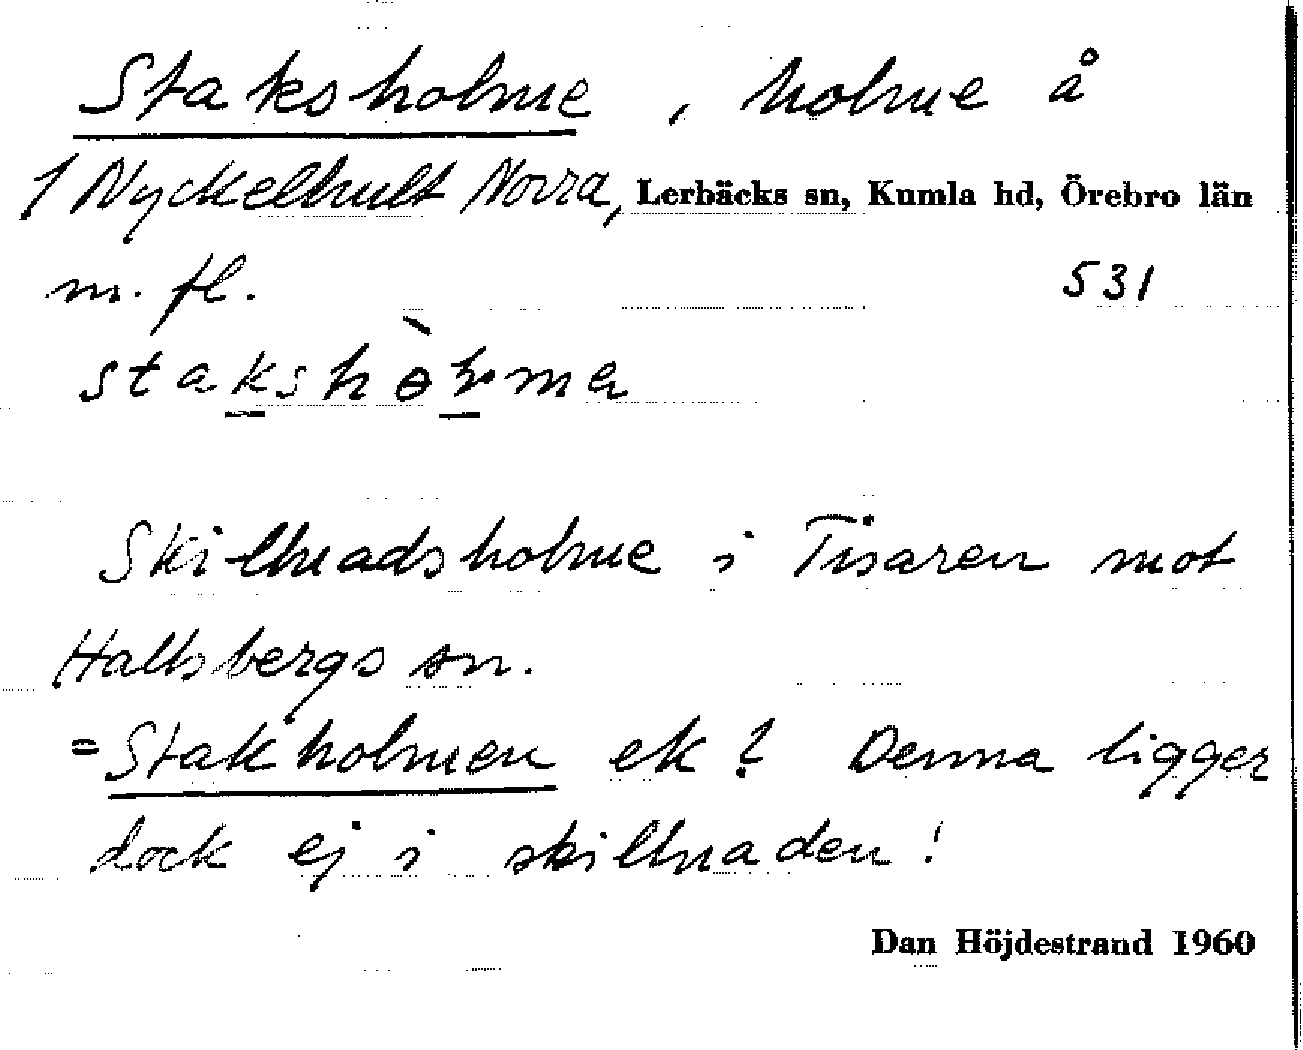 Staksholme, holme å
1 Nyckelhult Norra, Lerbäcks sn, Kumla hd, Örebro län
m. fl. 531
Skillnadsholme i Tisaren mot
Hallsbergs sn.
= Stakholmen ek? Denna ligger
dock ej i skillnaden!
Dan Höjdestrand 1960